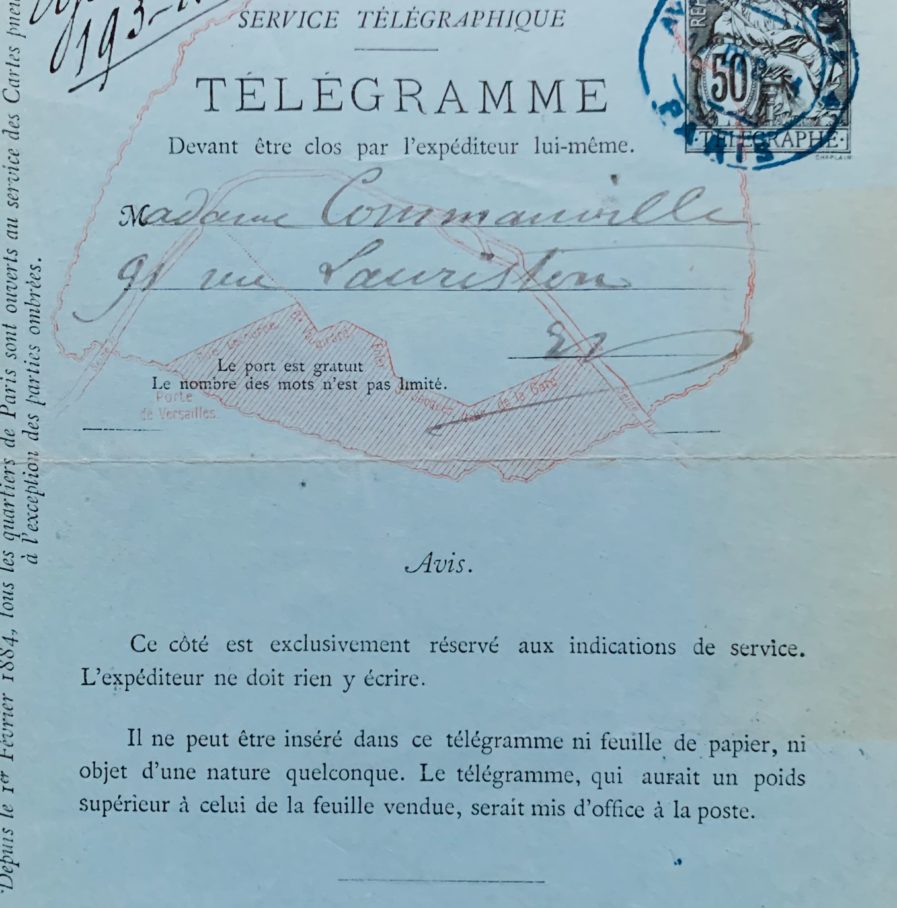 193-
SERVICE TÉLÉGRAPHIQUE
TÉLÉGRAMME
Devant être clos par l'expéditeur lui-même.
50
TÉLÉGRAPHE
CHAPLAIN
PARIS
Madame Commanville
91 rue Lauriston
Le port est gratuit
Le nombre des mots n'est pas limité.
Porte
de Versailles
de la Gare
Seine
Avis.
Ce côté est exclusivement réservé aux indications de service.
L'expéditeur ne doit rien y écrire.
Il ne peut être inséré dans ce télégramme ni feuille de papier, ni
objet d'une nature quelconque. Le télégramme, qui aurait un poids
supérieur à celui de la feuille vendue, serait mis d'office à la poste.
Depuis le 1er Février 1884, tous les quartiers de Paris sont ouverts au service des Cartes pneu
à l'exception des parties ombrées.